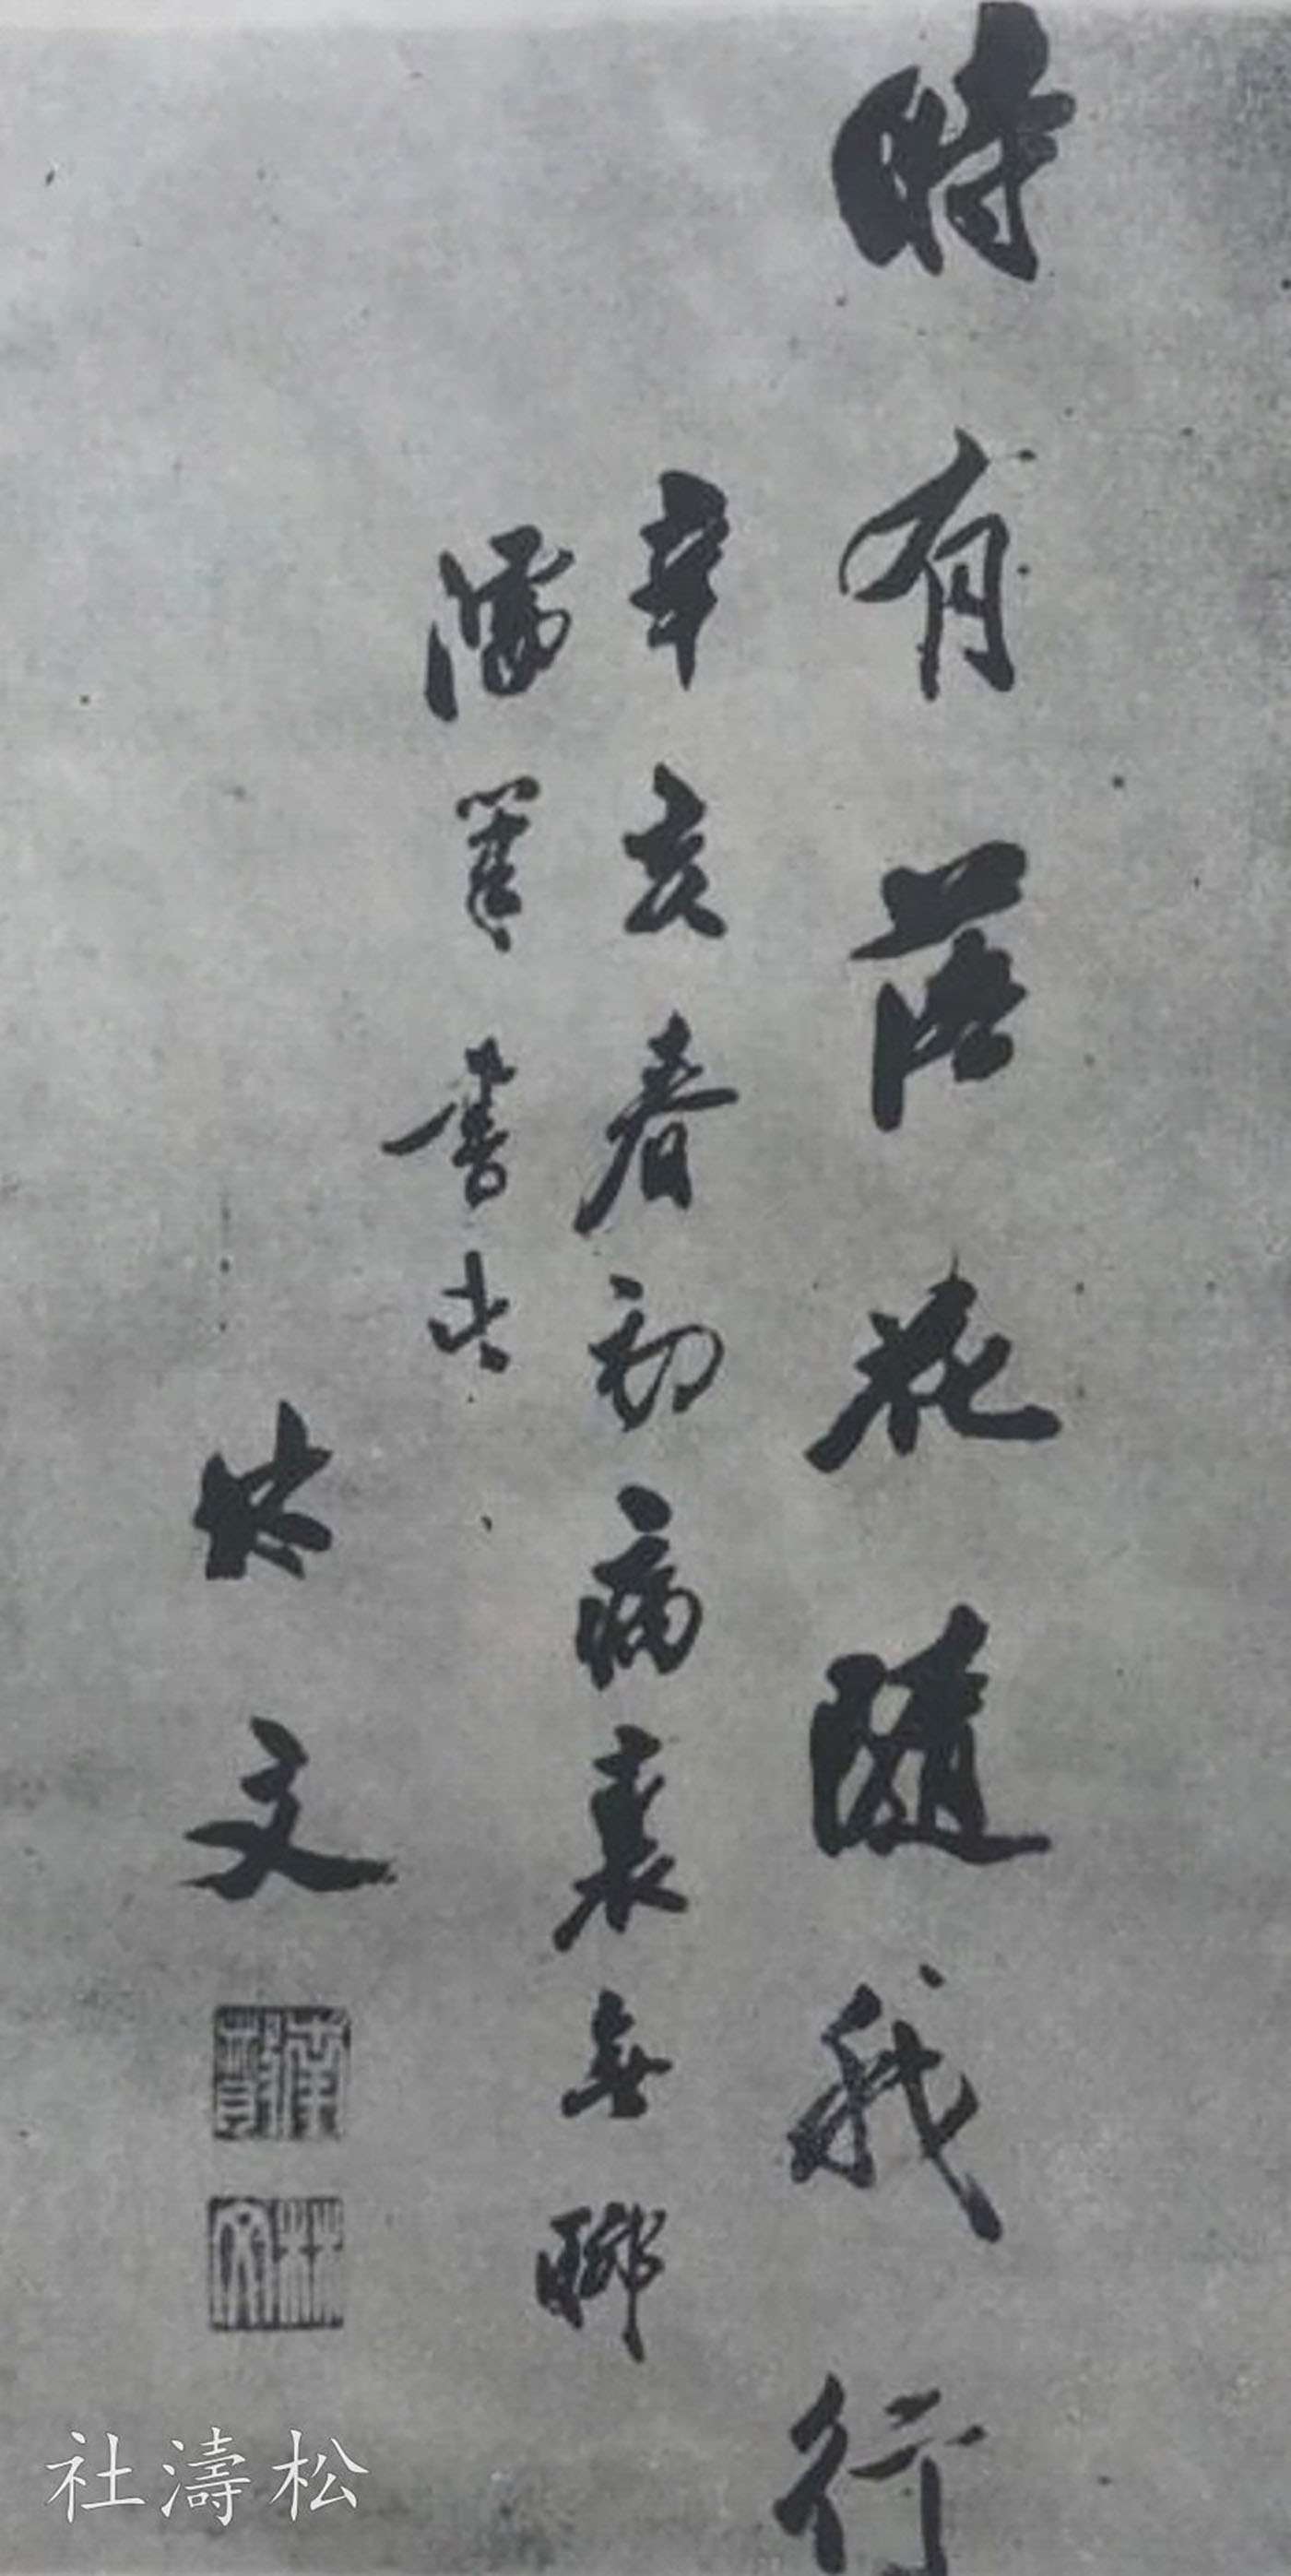 時有落花隨我行
辛亥春初病裏無聊
濡筆書此
林文
林文
松濤社